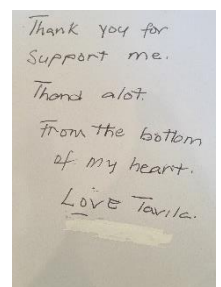 Thank you for
Support me.
Thand alot.
From the bottom
of my heart.
Love Tavila.